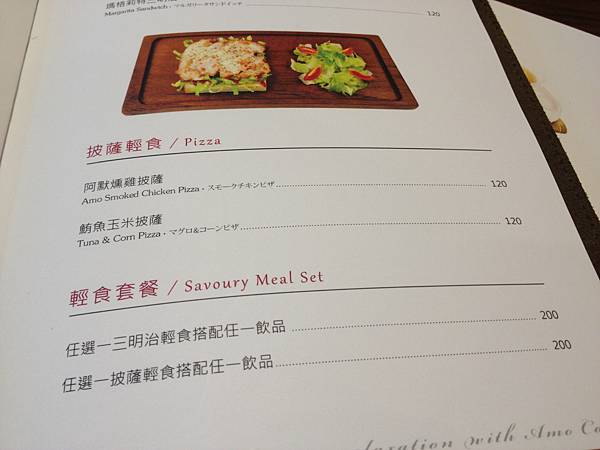 瑪格莉特三明治
Margarita Sandwich・マルガリータサンドイッチ 120
披薩輕食 / Pizza
阿默燻雞披薩
Amo Smoked Chicken Pizza・スモークチキンピザ 120
鮪魚玉米披薩
Tuna & Corn Pizza・マグロ&コーンピザ 120
輕食套餐 / Savoury Meal Set
任選一三明治輕食搭配任一飲品 200
任選一披薩輕食搭配任一飲品 200
with Amo